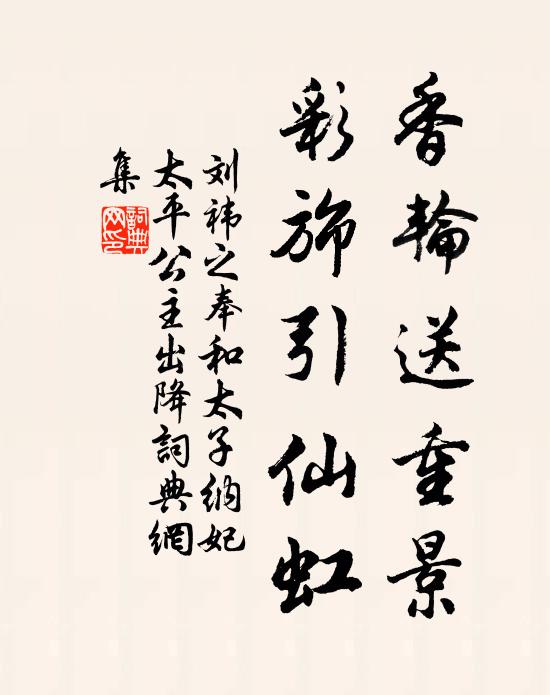 香輪送重景
彩旆引仙虹
刘祎之奉和太子納妃
太平公主出降詞典網
集
詞典
网印